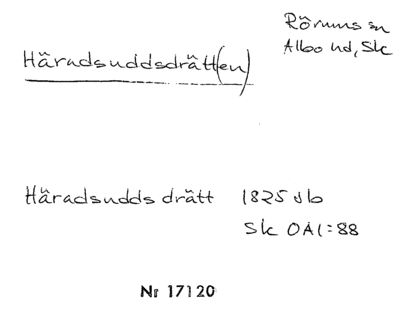 Rörums sn
Albo hd, Sk
Häradsuddsdrätt(en)
Häradsudds drätt 1825 db
Sk OAl:88
Nr 17120